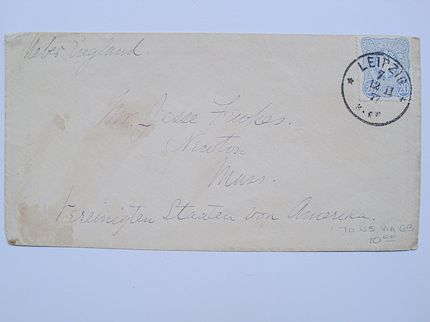 Ueber England.
LEIPZIG
7
12 11
77
Mr. Jesse Fewkes.
Newton
Mass.
Vereinigten Staaten von Amerika.
TO US VIA GB
10 00